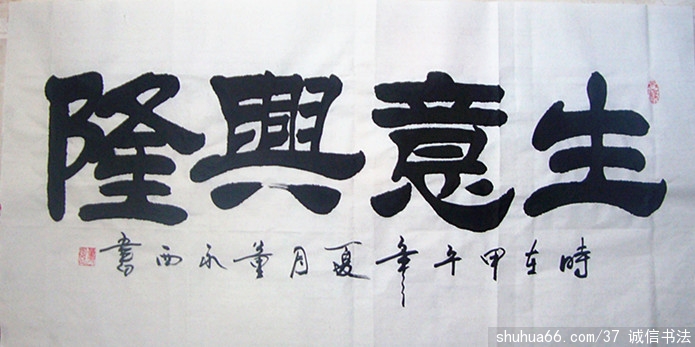 生意興隆
時在甲午年夏月董永西書
shuhua66.com/37 诚信书法